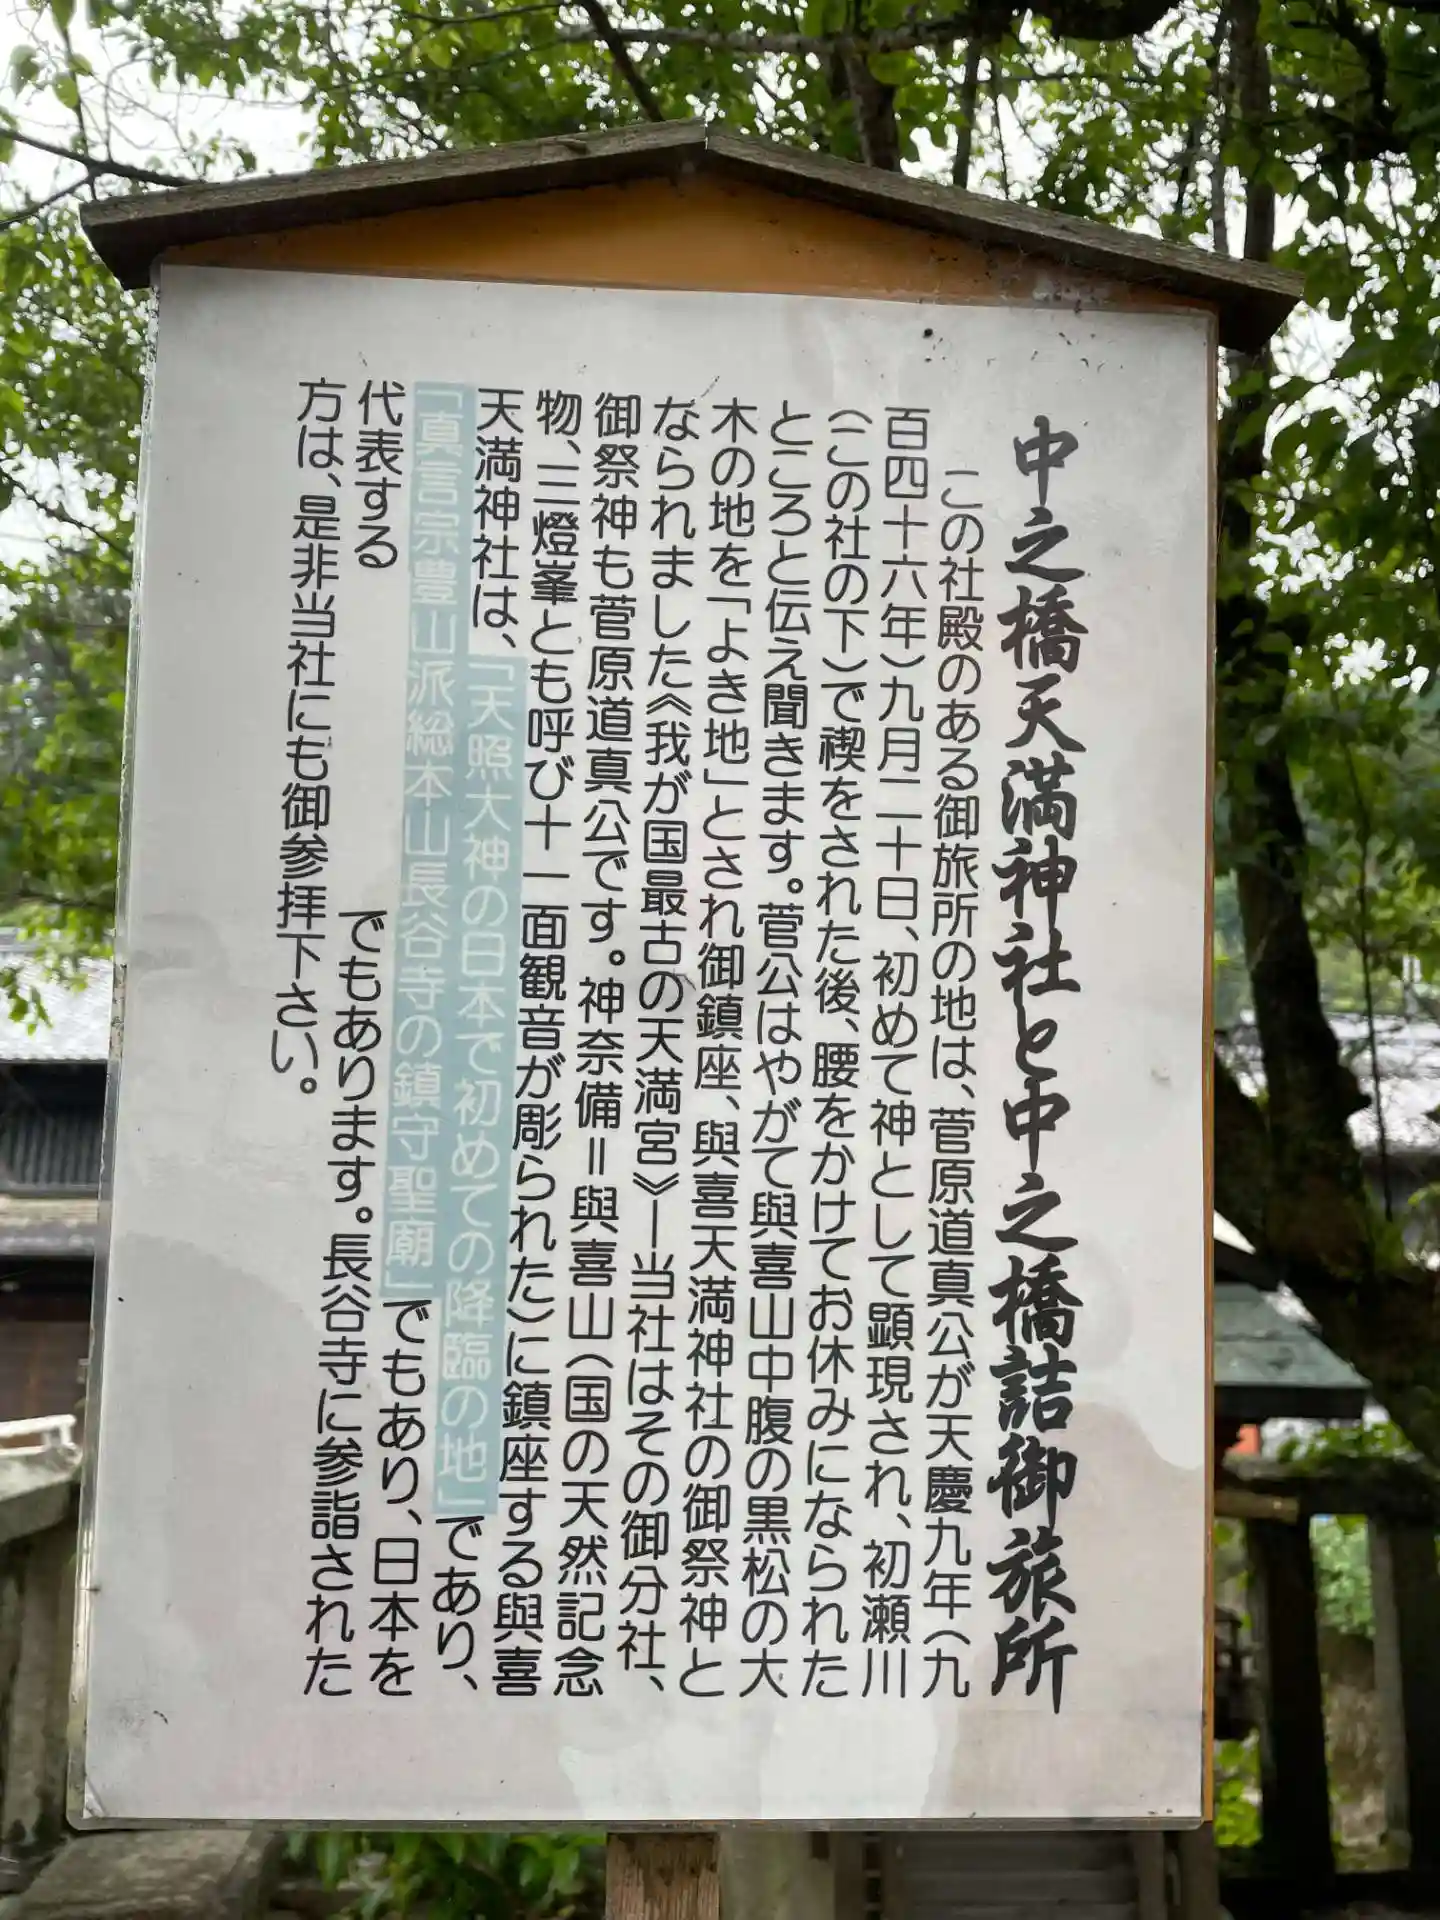 中之橋天満神社と中之橋詰御旅所
この社殿のある御旅所の地は、菅原道真公が天慶九年（九
百四十六年）九月二十日、初めて神として顕現され、初瀬川
（この社の下）で禊をされた後、腰をかけてお休みになられた
ところと伝え聞きます。菅公はやがて與喜山中腹の黒松の大
木の地を「よき地」とされ御鎮座、與喜天満神社の御祭神と
なられました《我が国最古の天満宮》―当社はその御分社、
御祭神も菅原道真公です。神奈備＝與喜山（国の天然記念
物、三燈峯とも呼び十一面観音が彫られた）に鎮座する與喜
天満神社は、「天照大神の日本で初めての降臨の地」であり、
「真言宗豊山派総本山長谷寺の鎮守聖廟」でもあり、日本を
代表する　　　　　　でもあります。長谷寺に参詣された
方は、是非当社にも御参拝下さい。